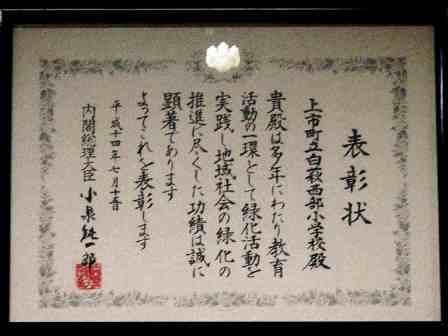 表彰状
上市町立白萩西部小学校殿
貴殿は多年にわたり教育
活動の一環として緑化活動を
実践し地域社会の緑化の
推進に尽くした功績は誠に
顕著であります
よってこれを表彰します
平成十四年七月十五日
内閣総理大臣 小泉純一郎